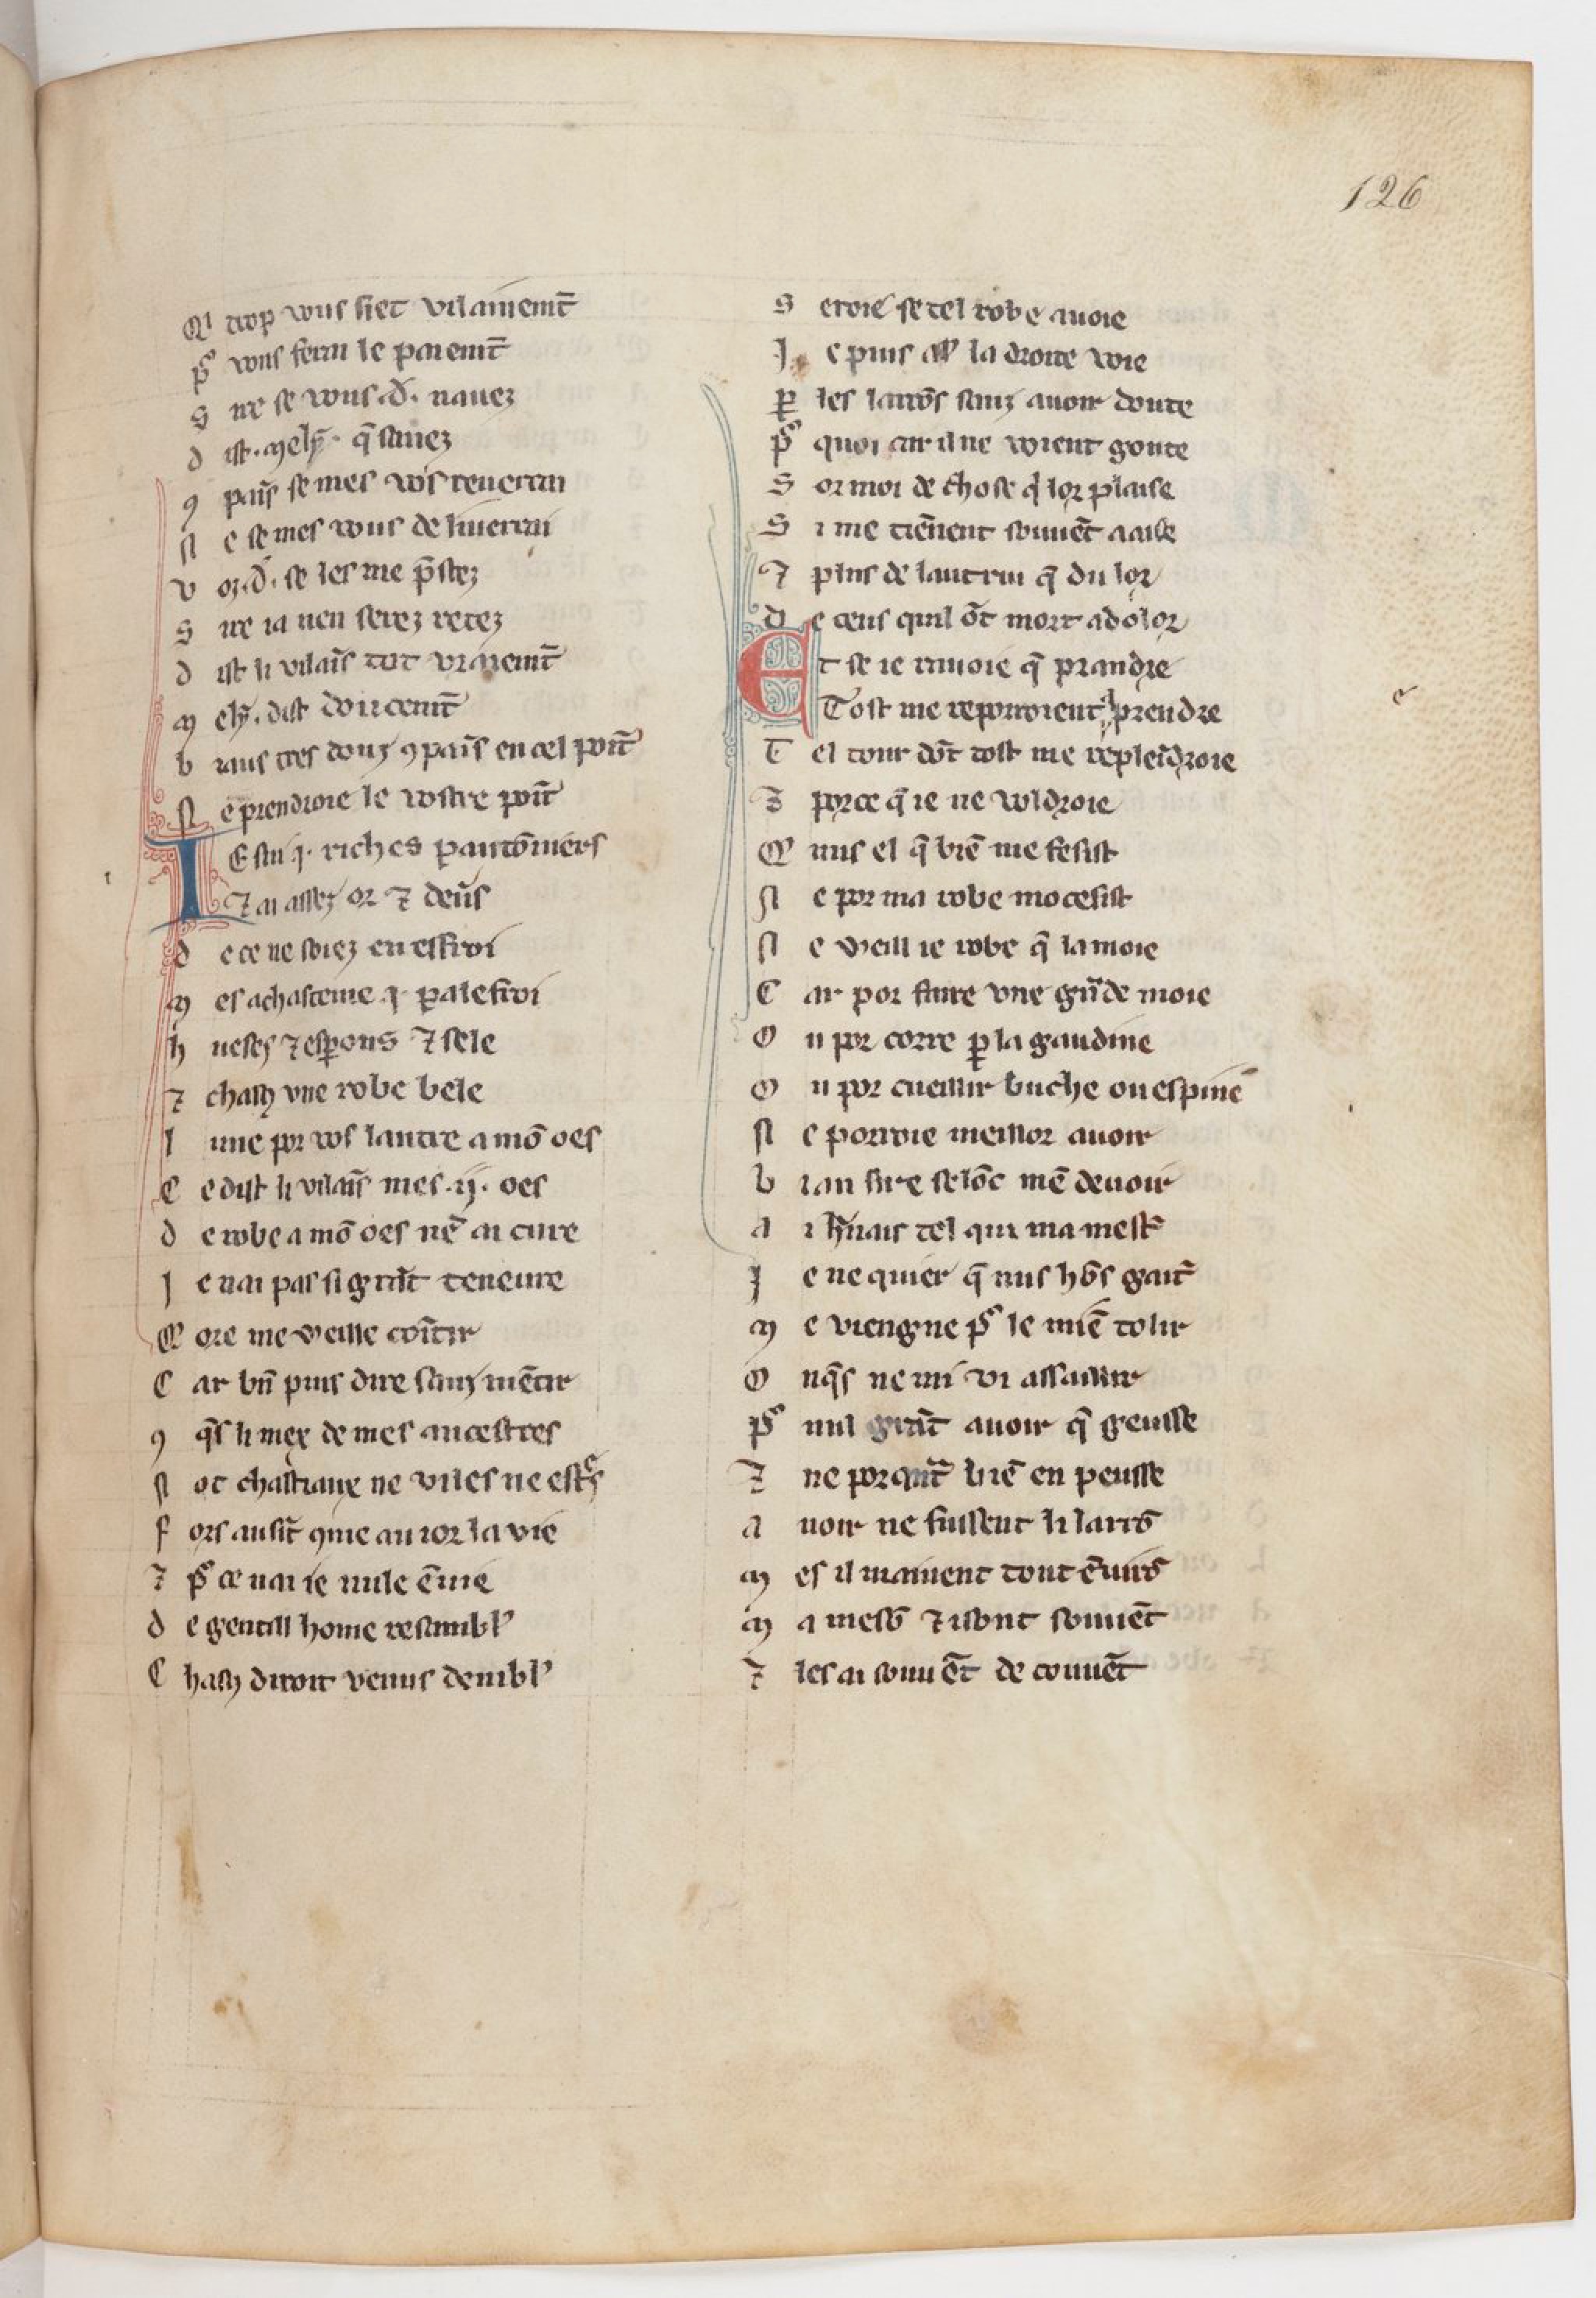 126
Qi trop vous siet vilainemt̄
pͦ vous ferai le paiemt̄
S ire se vous .d̄. navez
d ist .melȳ. q̄ savez
ꝯ pai̅s se mes vos teneran
N e se mes vous deliverai
v oz .d̄. se les me p̄stez
S ire ia nen serez retez
d ist li vilai̅s tot vraiemt̄
m elȳ. dist doucemt̄
b iaus tres douz ꝯpai̅s en cel poīt
N e prendroie le vostre poīt
I E sui .i. riches pautōniers
⁊ ai assez or ⁊ den̄s
d e ce ne soiez en effroi
m es achateme .i. palefroi
h ueses ⁊ esꝑons ⁊ sele
⁊ chasꝯ une robe bele
l une por vos lautre a mō oes
C e dist li vilai̅s mes .ij. oes
d e robe a mō oes nē ai cure
J e nai pas si grāt teneure
Q ore me veille cōtir
C ar bn̄ puis dire sanz mētir
ꝯ q̄s li mex de mes ancestres
N ot chastiaux ne viles ne estres
f ors ausit̄ ꝯme au ior la vie
⁊ pͦ ce nai ie nule ēvie
d e gentill home resambl'
C hasꝯ diroit venus denibl'
S eroie se tel robe avoie
J e puis al' la droite voie
ꝑ les larrōs sanz avoir doute
pͦ quoi car il ne voient goute
S or moi de chose q̇ lor plaise
S i me tiēnent souvēt a aise
⁊ plus de lautrui q̄ du lor
d e ceus quil ōt mort a dolor
E t se ie ravoie q̄ prandre
Tost me reporroient prendre
T el tour dōt tost me repleīdroie
⁊ por ce q̄ ie ne voldroie
Q nus el q̄ biē me fesist
N e por ma robe mocesist
N e veill ie robe q̄ la moie
C ar por faire une grāde moie
O u por corre ꝑ la gaudine
O u por cueillir buche ou espine
N e porroie meillor avoir
b iau sire selōc mē devoir
a i h̄nais tel qui ma mest'
J e ne quier q̄ nus hōs gait'
m e viengne pͦ le miē tolir
O nq̄s ne mi vi assaillir
pͦ nul grāt avoir q̄ ieusse
⁊ ne porqāt biē en peusse
a voir ne fussent li larrō
m es il mainent tout ēvirō
m a mesō ⁊ i sont souvēt
⁊ les ai souvēt de couvēt